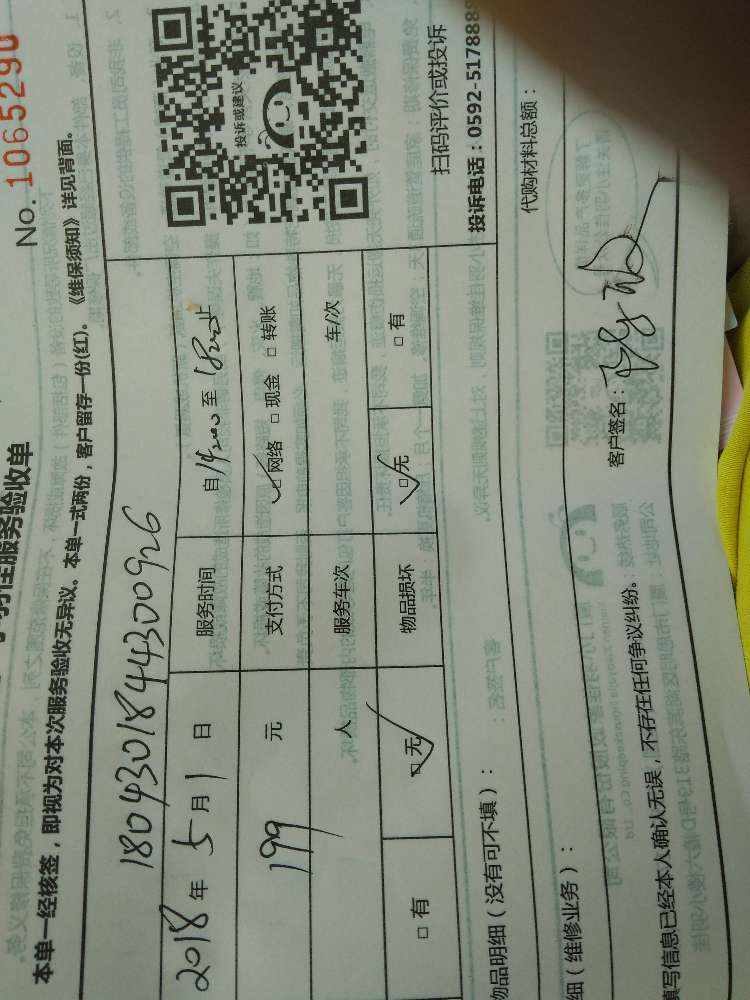 No. 1065290
佳服务验收单
本单一经核签，即视为对本次服务验收无异议。本单一式两份，客户留存一份(红)。《维保须知》详见背面。
1804301844300926
2018年5月1日 服务时间 自14:00至18:00止
199 元 支付方式 ☑网络 □现金 □转账
人 服务车次 车/次
□有 ☑无 物品损坏 ☑无 □有
投诉或建议
扫码评价或投诉
投诉电话：0592-517888
物品明细（没有可不填）：
代购材料总额：
细（维修业务）：
填写信息已经本人确认无误，不存在任何争议纠纷。
客户签名：